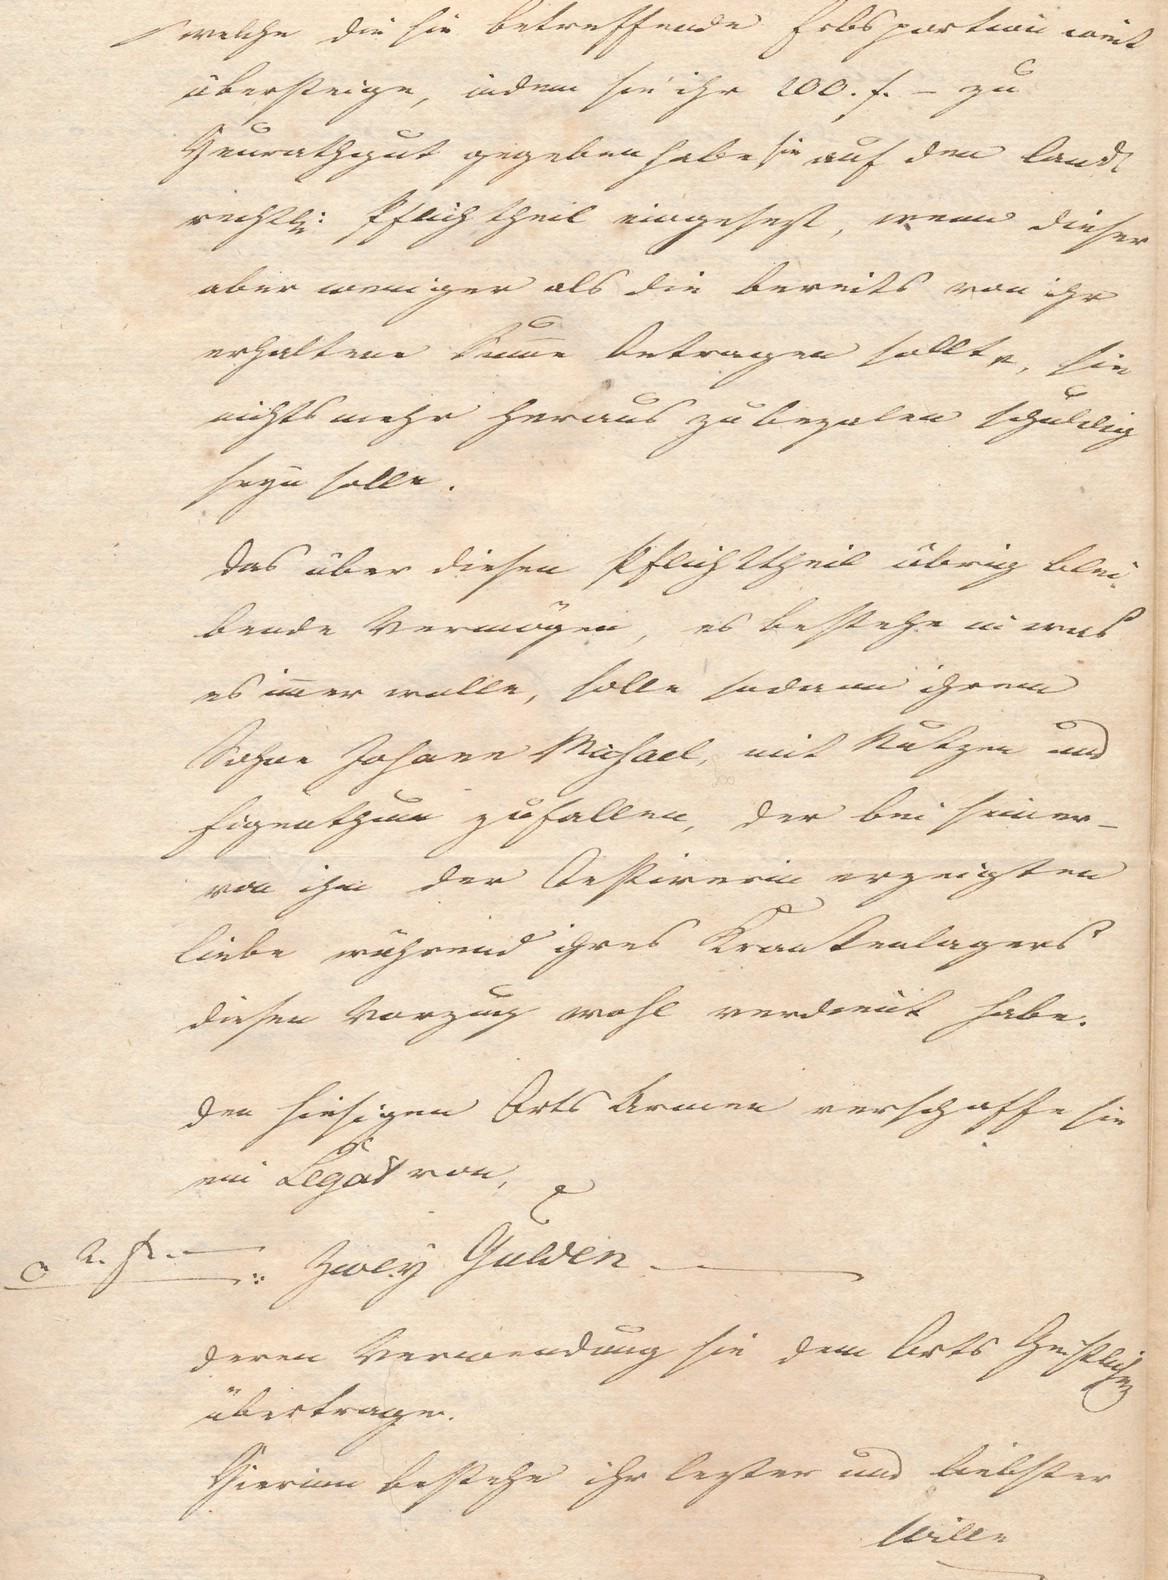 welche die sie betreffende Erbsportion weit
übersteige, indem sie ihr 200. f. – zu
Heurathgut gegeben habe sie auf den land
rechtl: Pflichtheil eingesezt, wenn dieser
aber weniger als die bereits von ihr
erhaltene Summe betragen sollte, sie
nichts mehr heraus zu bezalen schuldig
seyn solle.
Das über diesen Pflichttheil übrig blei-
bende Vermögen, es bestehe in was
es immer wolle, solle sodann ihrem
Sohne Johann Michael, mit Nutzen und
Eigenthum zufallen, der bei seiner –
von ihm der erzeigten
Liebe während ihres Krankenlagers
diesen Vorzug wohl verdient habe.
Den hiesigen Orts Armen verschaffe sie
ein Legat von,
2. fl. — : Zwey Gulden —
deren Verwendung sie dem Orts Geistlichen
übertrage.
Hierinn bestehe ihr lezter und liebster
Wille